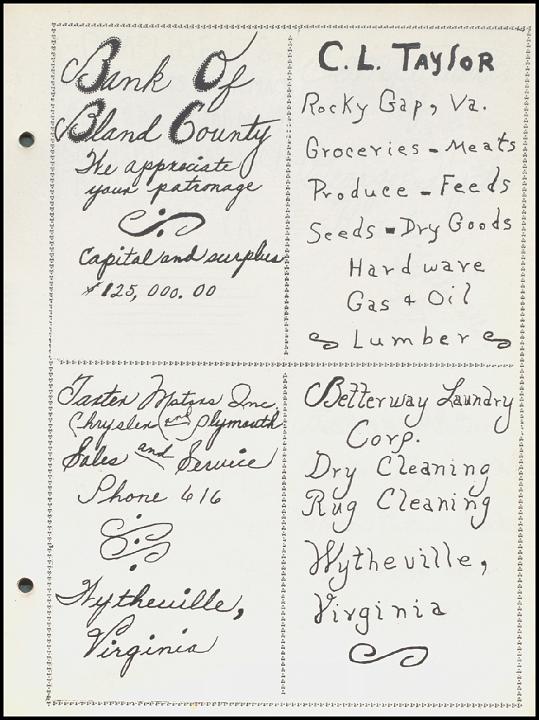 Bank Of
Bland County
We appreciate
your patronage
Capital and surplus
$125,000.00
C. L. TAYlOR
Rocky Gap, Va.
Groceries - Meats
Produce - Feeds
Seeds - Dry Goods
Hardware
Gas & Oil
Lumber
Motors Inc.
Chrysler and Plymouth
Sales and Service
Phone 616
Wytheville,
Virginia
Betterway Laundry
Corp.
Dry Cleaning
Rug Cleaning
Wytheville,
Virginia